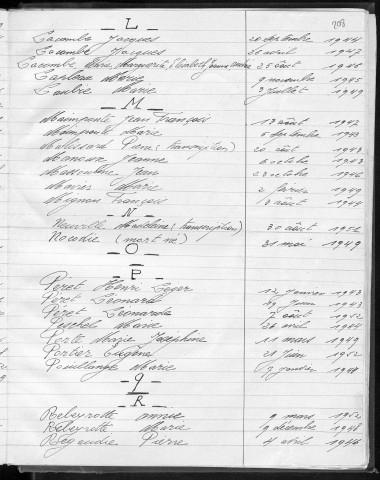 203
_ L _
Lacombe Jacques 20 septembre 1944
Lacombe Jacques 26 avril 1947
Lacombe Marie Marguerite Elisabeth Jeanne 25 août 1946
Laplace Marie 9 novembre 1945
Loubrie Marie 3 juillet 1949
_ M _
Mainponte Jean François 13 août 1942
Mainponte Marie 6 septembre 1943
Malissard Pierre (transcription) 20 août 1943
Maneux Jeanne 6 octobre 1943
Massoubre Jean 23 octobre 1946
Mavier Marie 2 février 1949
Mignon François août 1944
_ N _
Neuville Madeleine (transcription) 30 août 1956
Nocodie (mort né) 31 mai 1949
_ O _
_ P _
Péret Henri Léger 12 janvier 1943
Péret Léonard 29 juin 1943
Péret Léonarde 2 août 1952
Peuchel Marie 26 avril 1944
Porte Marie Joséphine 11 mars 1949
Portier Eugène 21 juin 1952
Poultange Marie 9 janvier 1948
_ q _
_ R _
Rebeyrotte Annie 9 mars 1952
Rebeyrotte Marie 19 décembre 1948
Régaudie Pierre 4 avril 1946